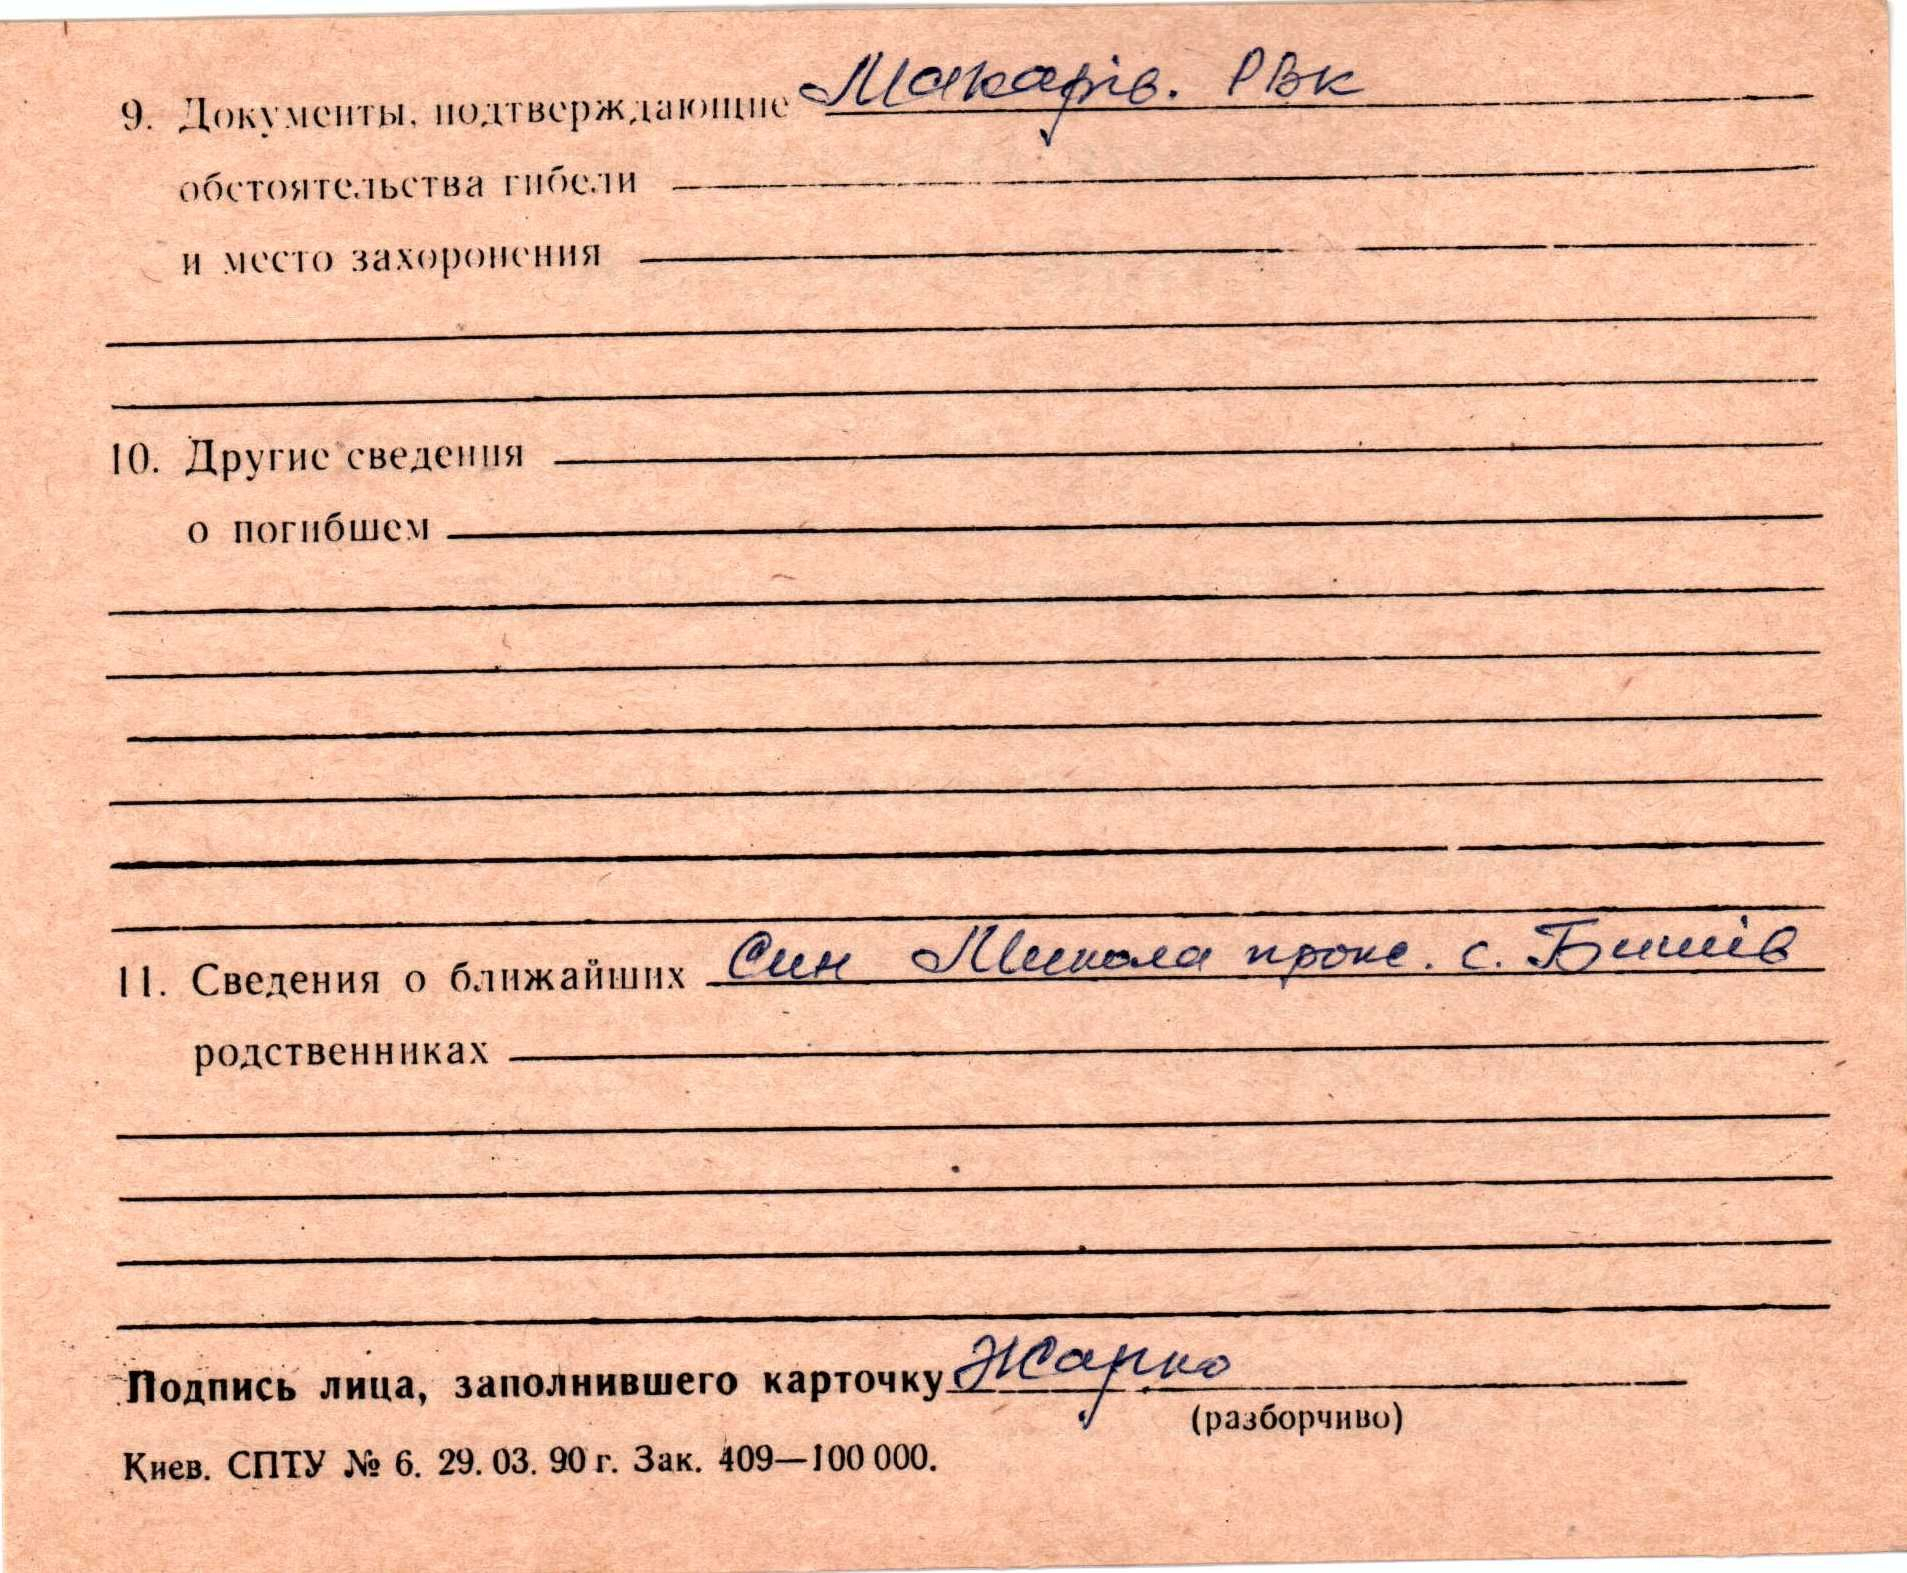 9. Документы, подтверждающие Макарів. РВК
обстоятельства гибели
и место захоронения
10. Другие сведения
о погибшем
11. Сведения о ближайших Син Микола прож. с. Бишів
родственниках
Подпись лица, заполнившего карточку Жарко
(разборчиво)
Киев. СПТУ № 6. 29. 03. 90 г. Зак. 409—100 000.